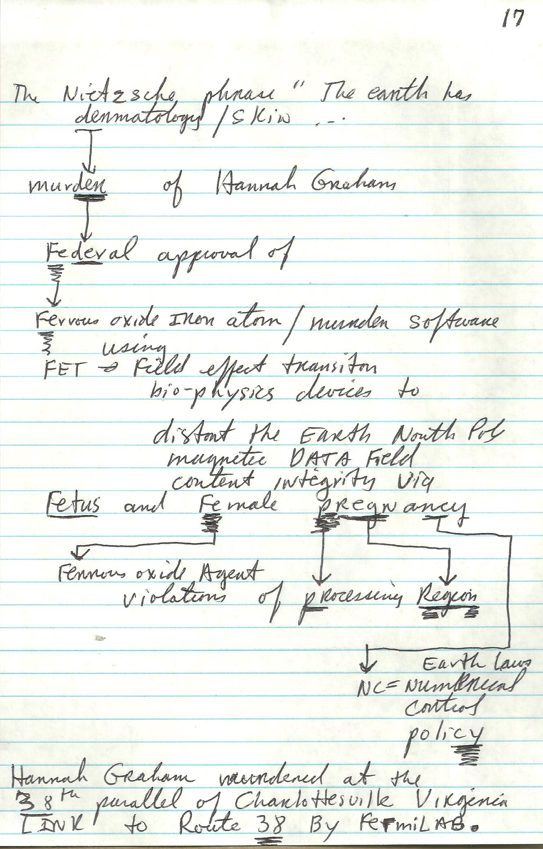 17
The Nietzsche phrase "The earth has
dermatology / Skin ...
murder of Hannah Graham
Federal approval of
Ferrous oxide Iron atom / murder software
using
FET → Field effect transiton
bio-physics devices to
distort the Earth North Pole
magnetic DATA Field
content integrity via
Fetus and Female pregnancy
Ferrous oxide Agent
violations of processing Region
Earth Laws
NC = Numerical
control
policy
Hannah Graham murdered at the
38th parallel of Charlottesville Virginia
LINK to Route 38 By FermiLAB.